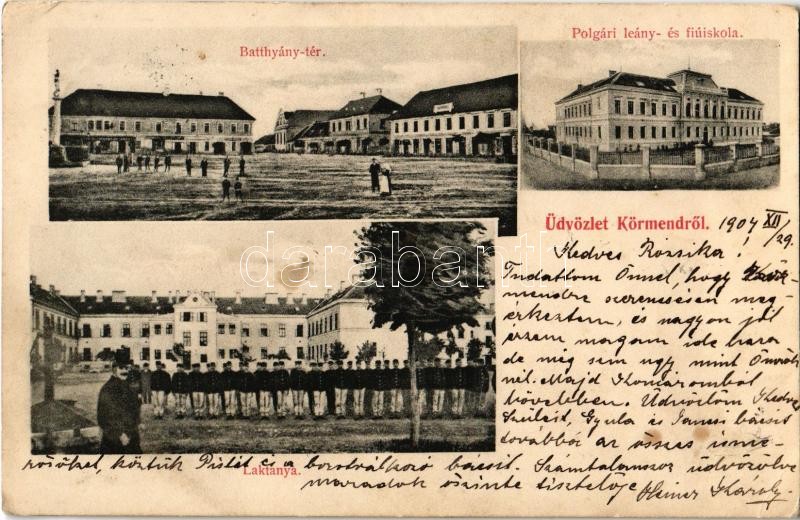 Batthyány-tér.
Polgári leány- és fiúiskola.
Üdvözlet Körmendről. 1904 XII/29.
Kedves Rózsika!
Tudattom Önnel, hogy Kör-
mendre szerencsésen meg-
érkeztem, és nagyon jól
érzem magam ide haza
de még sem ugy mint Önök-
nél. Majd Komáromból
bővebben. Üdvözlöm Kedves
Szüleit, Gyula és Jancsi bácsit
továbbá az összes isme-
rősöket, köztük Pistát és a borotválkozó bácsit. Számtalanszor üdvözölve
maradok őszinte tisztelője Károly
Laktanya.
darabanth